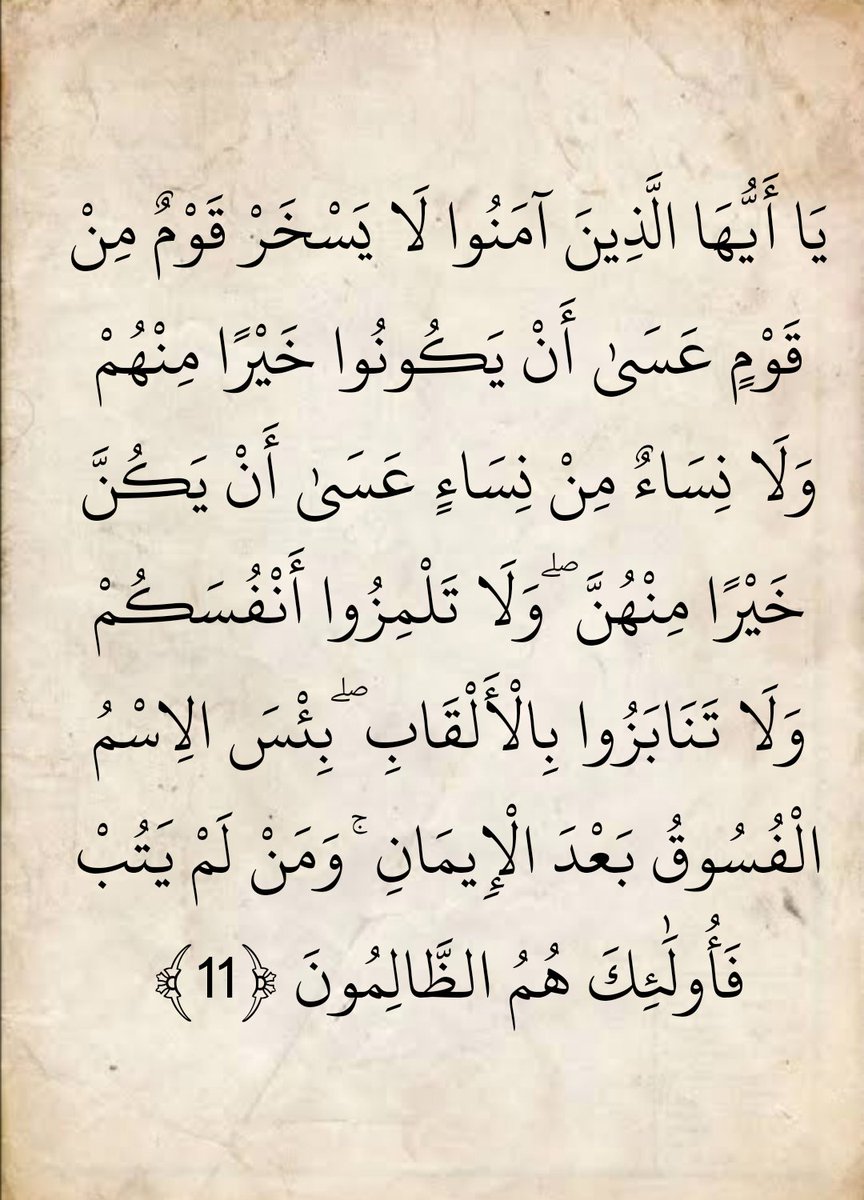 يَا أَيُّهَا الَّذِينَ آمَنُوا لَا يَسْخَرْ قَوْمٌ مِنْ
قَوْمٍ عَسَىٰ أَنْ يَكُونُوا خَيْرًا مِنْهُمْ
وَلَا نِسَاءٌ مِنْ نِسَاءٍ عَسَىٰ أَنْ يَكُنَّ
خَيْرًا مِنْهُنَّ ۖ وَلَا تَلْمِزُوا أَنْفُسَكُمْ
وَلَا تَنَابَزُوا بِالْأَلْقَابِ ۖ بِئْسَ الِاسْمُ
الْفُسُوقُ بَعْدَ الْإِيمَانِ ۚ وَمَنْ لَمْ يَتُبْ
فَأُولَٰئِكَ هُمُ الظَّالِمُونَ ﴿11﴾